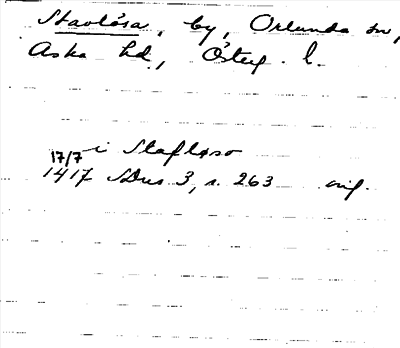 Stavlösa, by, Orlunda sn,
Aska hd, Österg. l.
i Stafløso
17/7
1417 SDns 3, s. 263 orig.